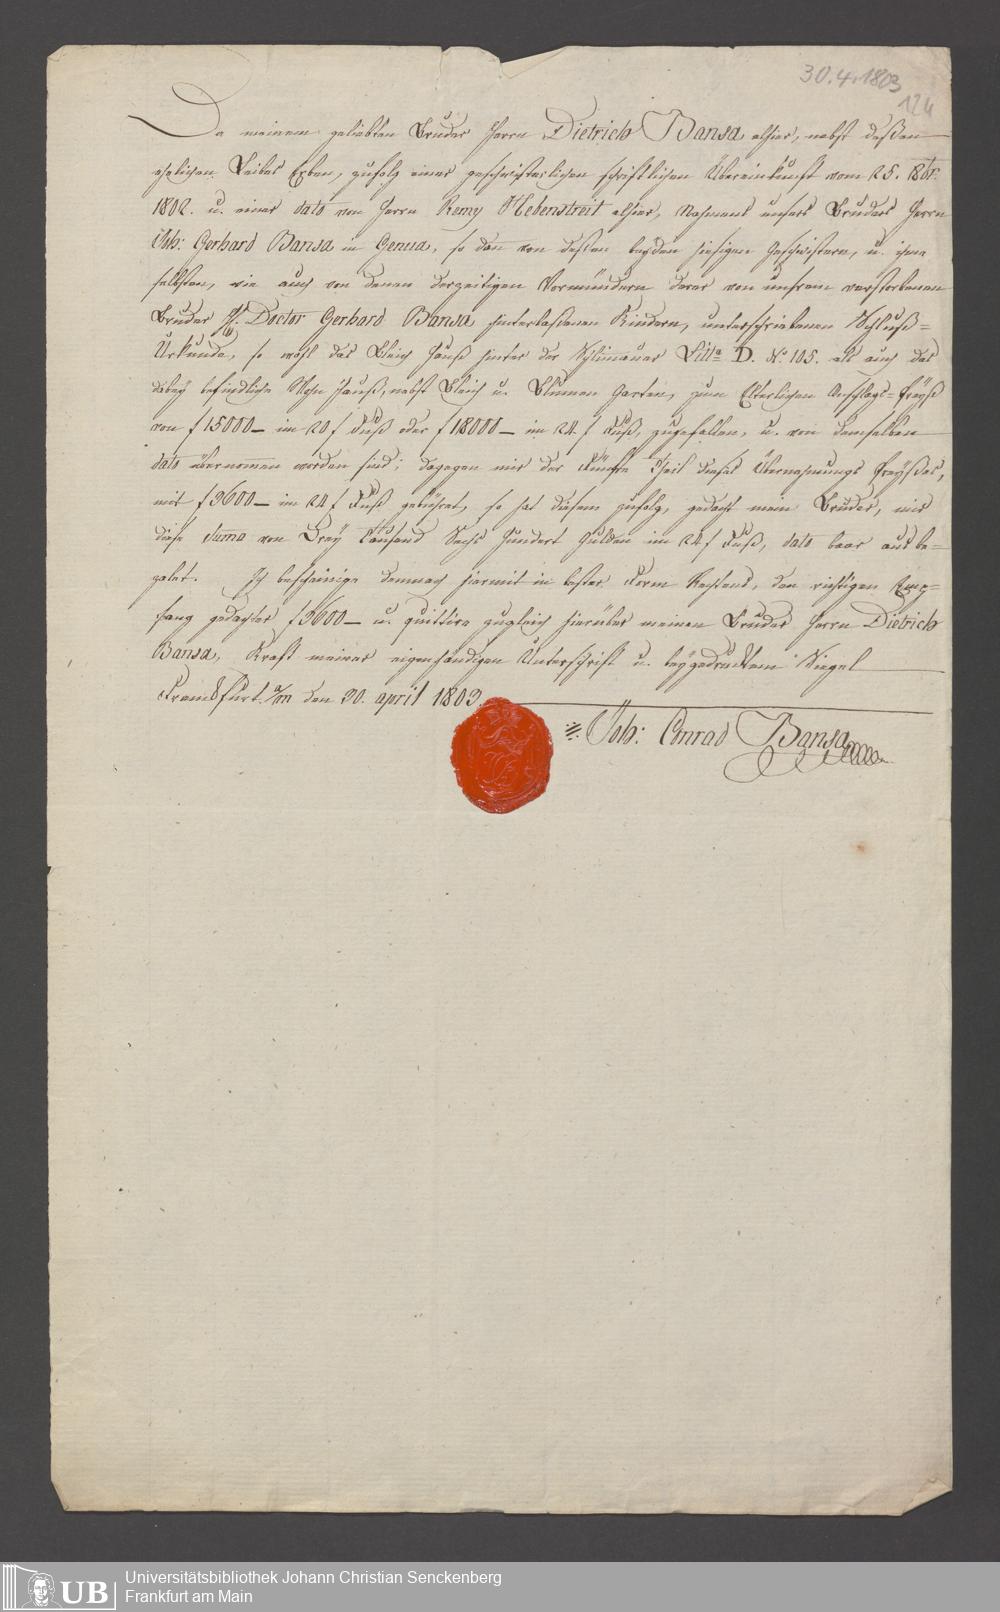 30.4.1803
124
Da meinem geliebten Bruder Herrn Dietrich Bansa alhier, nebst deßen
ehelichen Leibes Erben, zufolg einer geschwisterlichen schriftlichen Übereinkunft vom 25. 8br.
1802. u. einer dato von Herrn Remy Hebenstreit alhier, Nahmens unsers Bruders Herrn
Joh: Gerhard Bansa in Genua, so dan von deßen beyden hiesigen Geschwistern, u. ihme
selbsten, wie auch von denen derzeitigen Vormündern derer von unsrem verstorbenen
Bruder H. Doctor Gerhard Bansa hinterlaßenen Kindern, unterschriebenen Schluß=
Urkunde, so wohl das Bleich Hauß hinter der Schlimauer Litta D. No. 105. als auch das
dabey befindliche Wohn Hauß, nebst Bleich u. Blumen Garten, zum Elterlichen Anschlags=Preyß
von f 15000_ im 20 f Fuß oder f 18000_ im 24 f Fuß, zugefallen, u. von demselben
dato übernomen worden sind; dagegen mir der Fünfte Theil dieses Übernahmungs Preyßes,
mit f 3600_ im 24 f Fuß gebühret, so hat diesem zufolg, gedacht mein Bruder, mir
diese Suma von Drey Tausend Sechs Hundert Gulden im 24 f Fuß, dato baar aus be=
zalet. Ich bescheinige demnach hiermit in bester Form Rechtens, den richtigen Emp=
fang gedachter f 3600_ u. quittire zugleich hierüber meinen Bruder Herrn Dietrich
Bansa, Kraft meiner eigenhändigen Unterschrift u. beygedrucktem Siegel
Frankfurt a/m den 30. april 1803.
Joh: Conrad Bansa
UB
Universitätsbibliothek Johann Christian Senckenberg
Frankfurt am Main